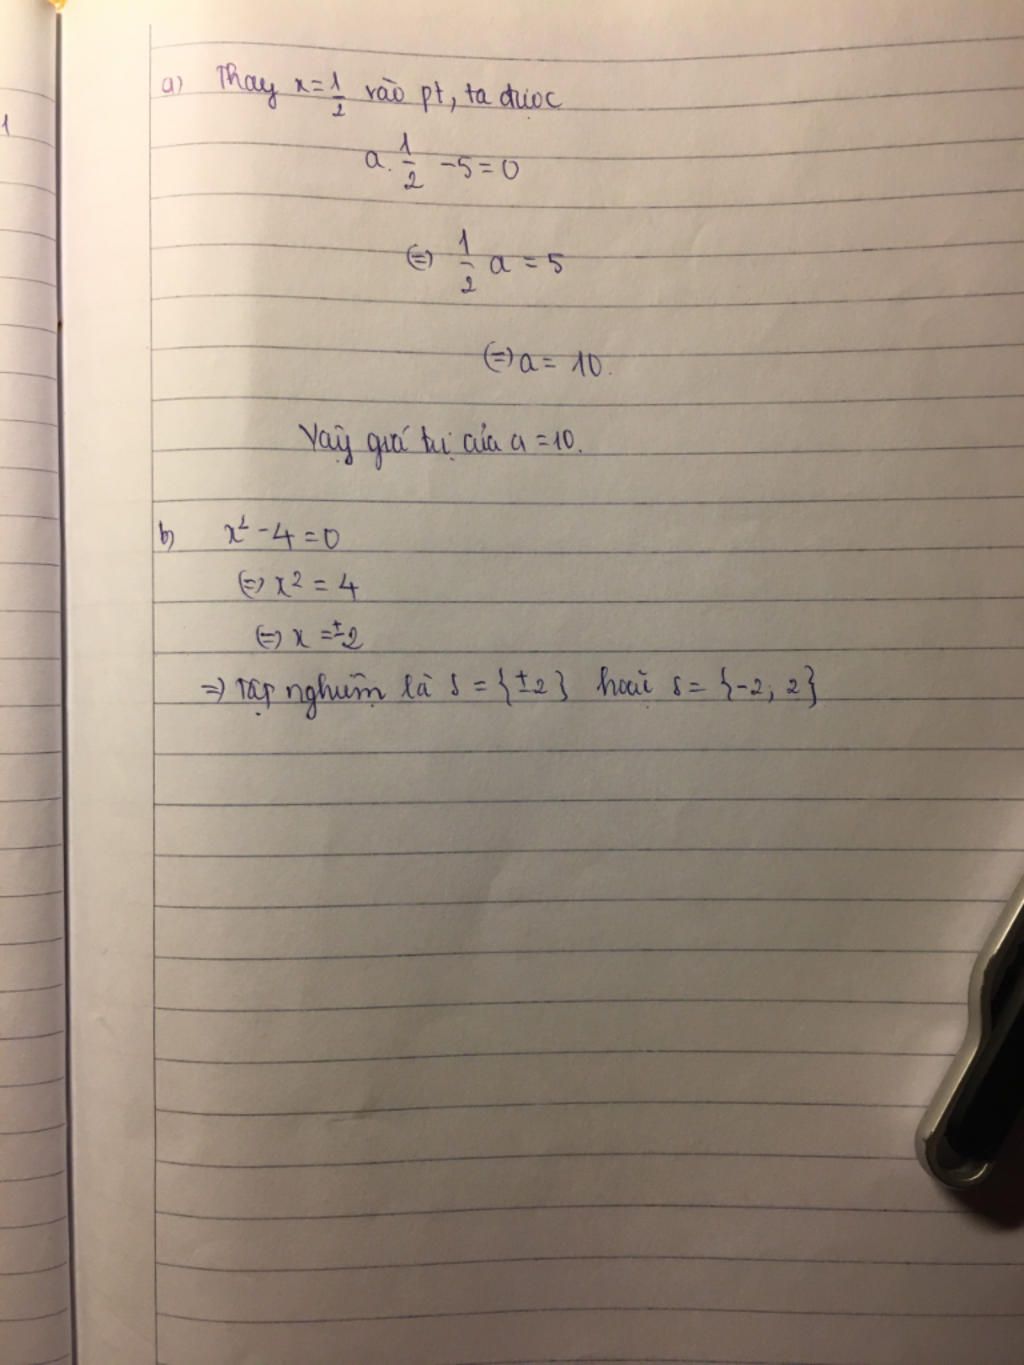 1
a) Thay x = 1/2 vào pt, ta được
a. 1/2 - 5 = 0
(=) 1/2 a = 5
(=) a = 10.
Vậy giá trị của a = 10.
b) x² - 4 = 0
(=) x² = 4
(=) x = ±2
=) Tập nghiệm là S = {±2} hoặc S = {-2; 2}